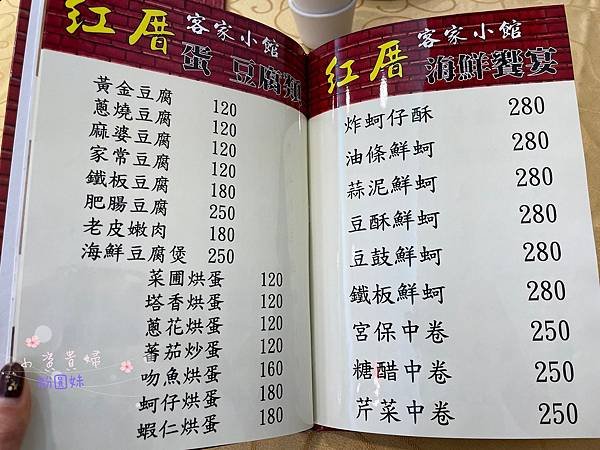 紅厝 客家小館
蛋 豆腐類
黃金豆腐 120
蔥燒豆腐 120
麻婆豆腐 120
家常豆腐 120
鐵板豆腐 180
肥腸豆腐 250
老皮嫩肉 180
海鮮豆腐煲 250
菜圃烘蛋 120
塔香烘蛋 120
蔥花烘蛋 120
蕃茄炒蛋 120
吻魚烘蛋 160
蚵仔烘蛋 180
蝦仁烘蛋 180
紅厝 客家小館
海鮮饗宴
炸蚵仔酥 280
油條鮮蚵 280
蒜泥鮮蚵 280
豆酥鮮蚵 280
豆鼓鮮蚵 280
鐵板鮮蚵 280
宮保中卷 250
糖醋中卷 250
芹菜中卷 250
小資貴婦
粉圓妹